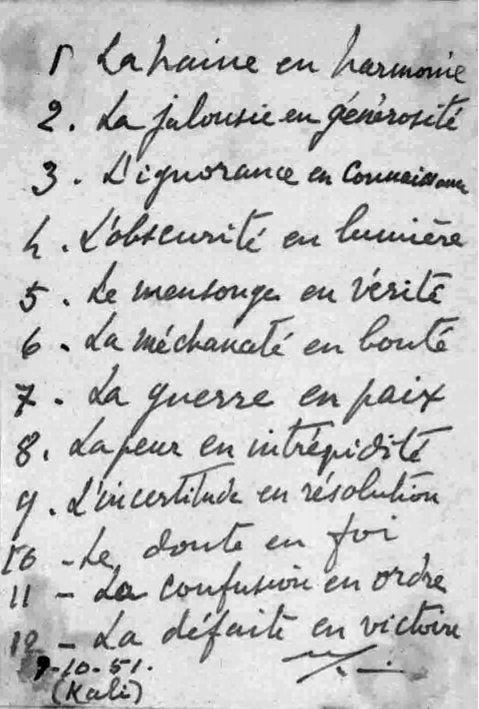 1 La haine en harmonie
2. La jalousie en générosité
3. L'ignorance en connaissance
4. L'obscurité en lumière
5. Le mensonge en vérité
6. La méchanceté en bonté
7. La guerre en paix
8. La peur en intrépidité
9. L'incertitude en résolution
10 - Le doute en foi
11 - La confusion en ordre
12 - La défaite en victoire
9-10-51.
(Kali)